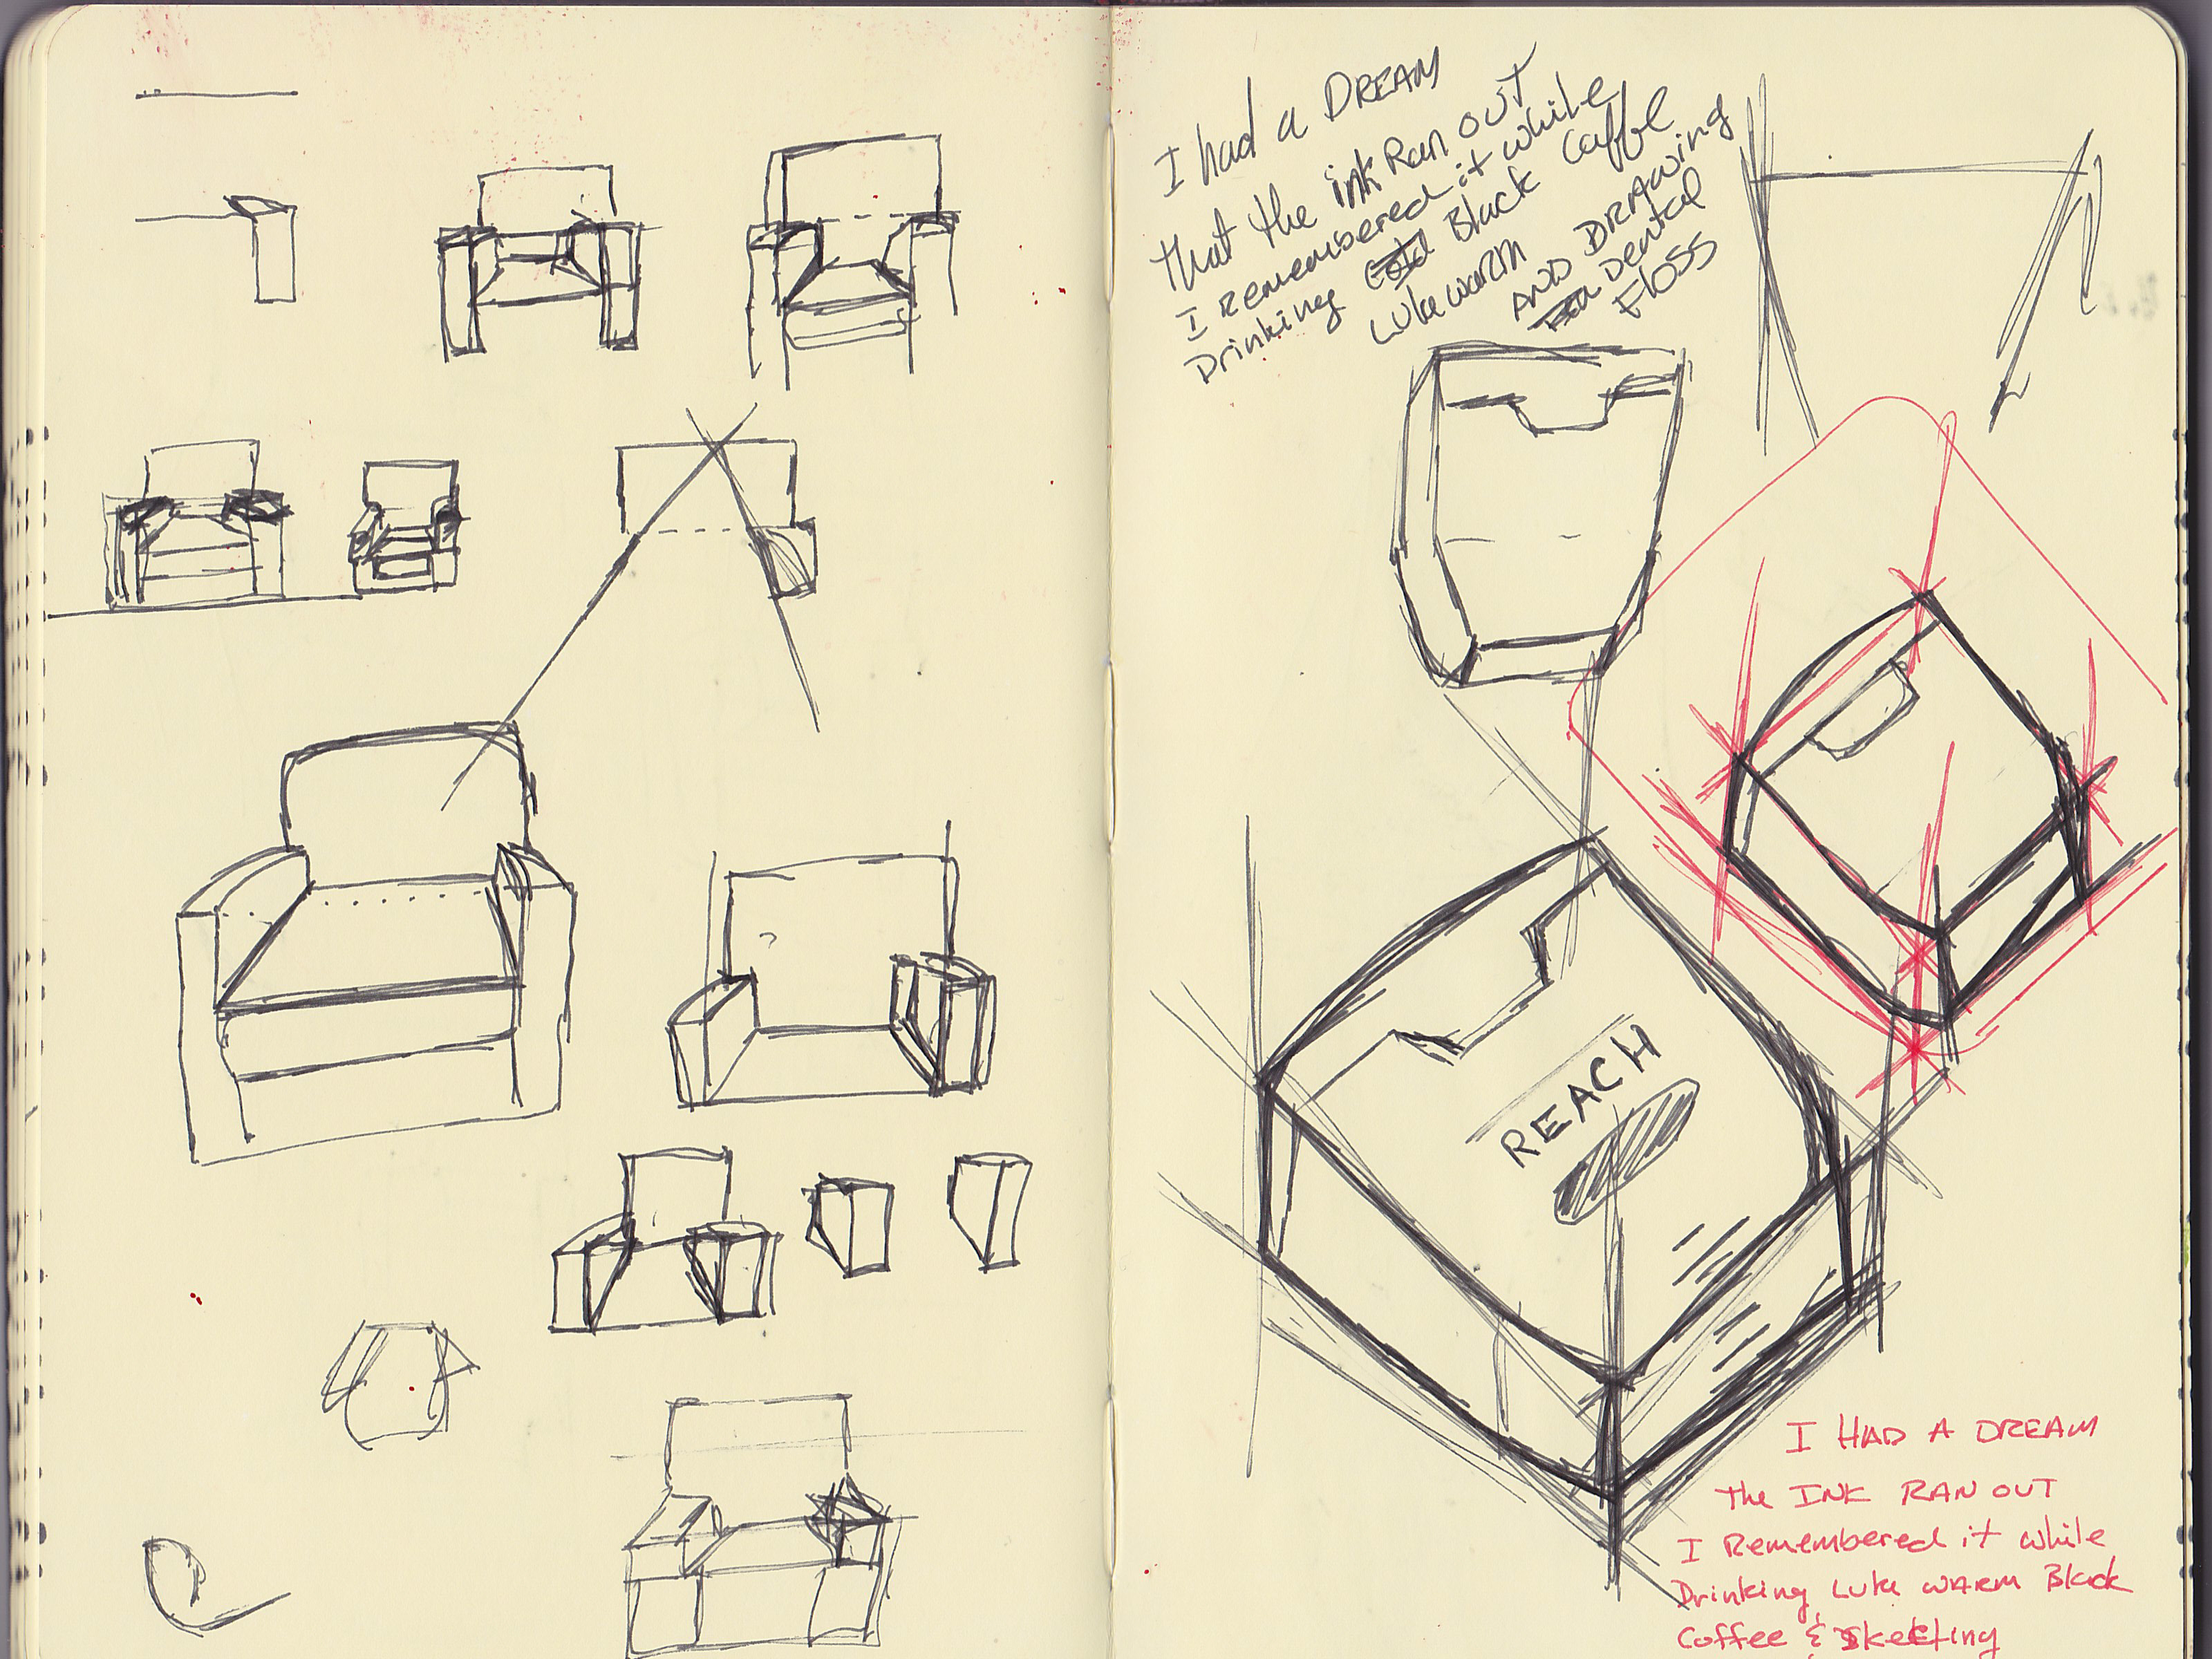 I had a DREAM
that the ink Ran OUT
I Remembered it while
Drinking Black Coffe
Luke warm
AND DRAWING
Dental
Floss
REACH
I HAD A DREAM
the INK RAN OUT
I Remembered it while
Drinking Luke WARM Black
Coffee & Skeeting